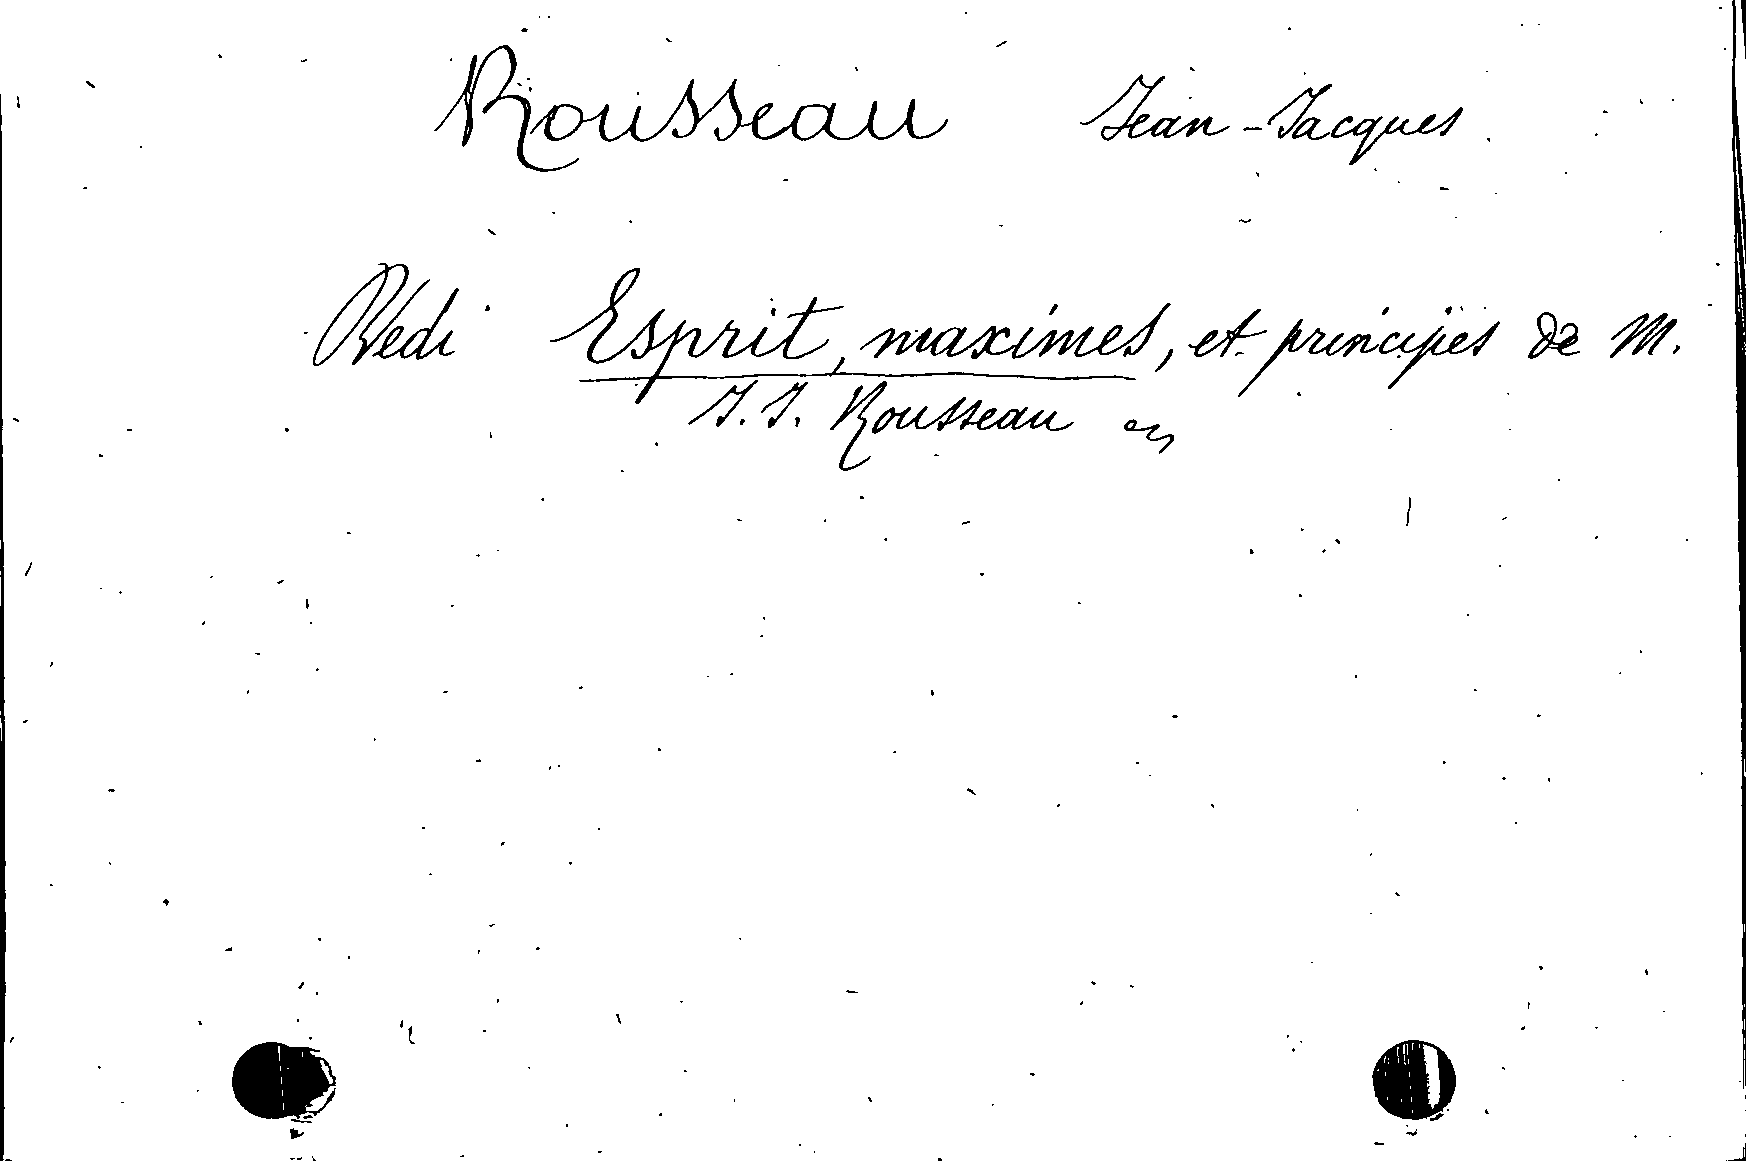 Rousseau Jean-Jacques
Vedi Esprit, maximes, et principes de M.
J. J. Rousseau